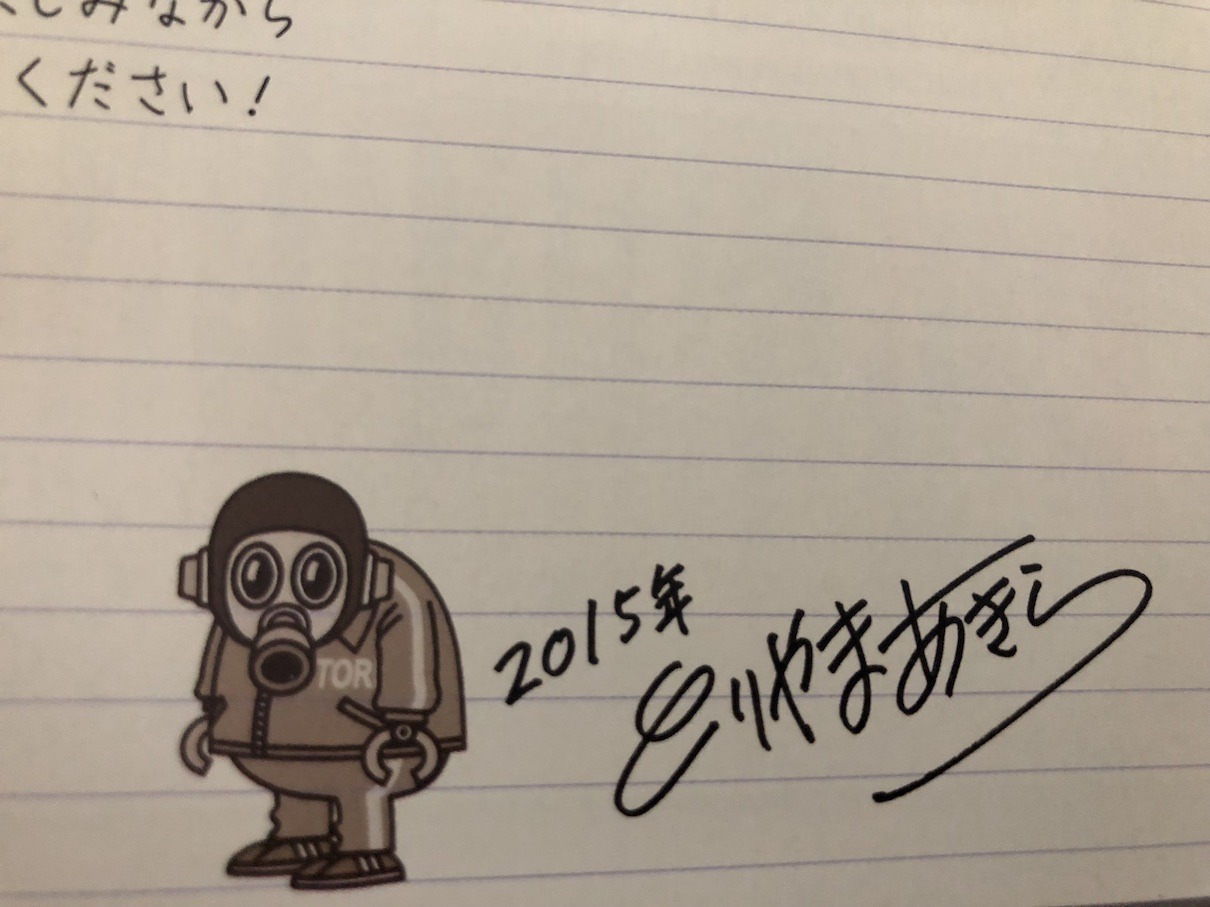 しみながら
ください!
TOR
2015年
とりやまあきら